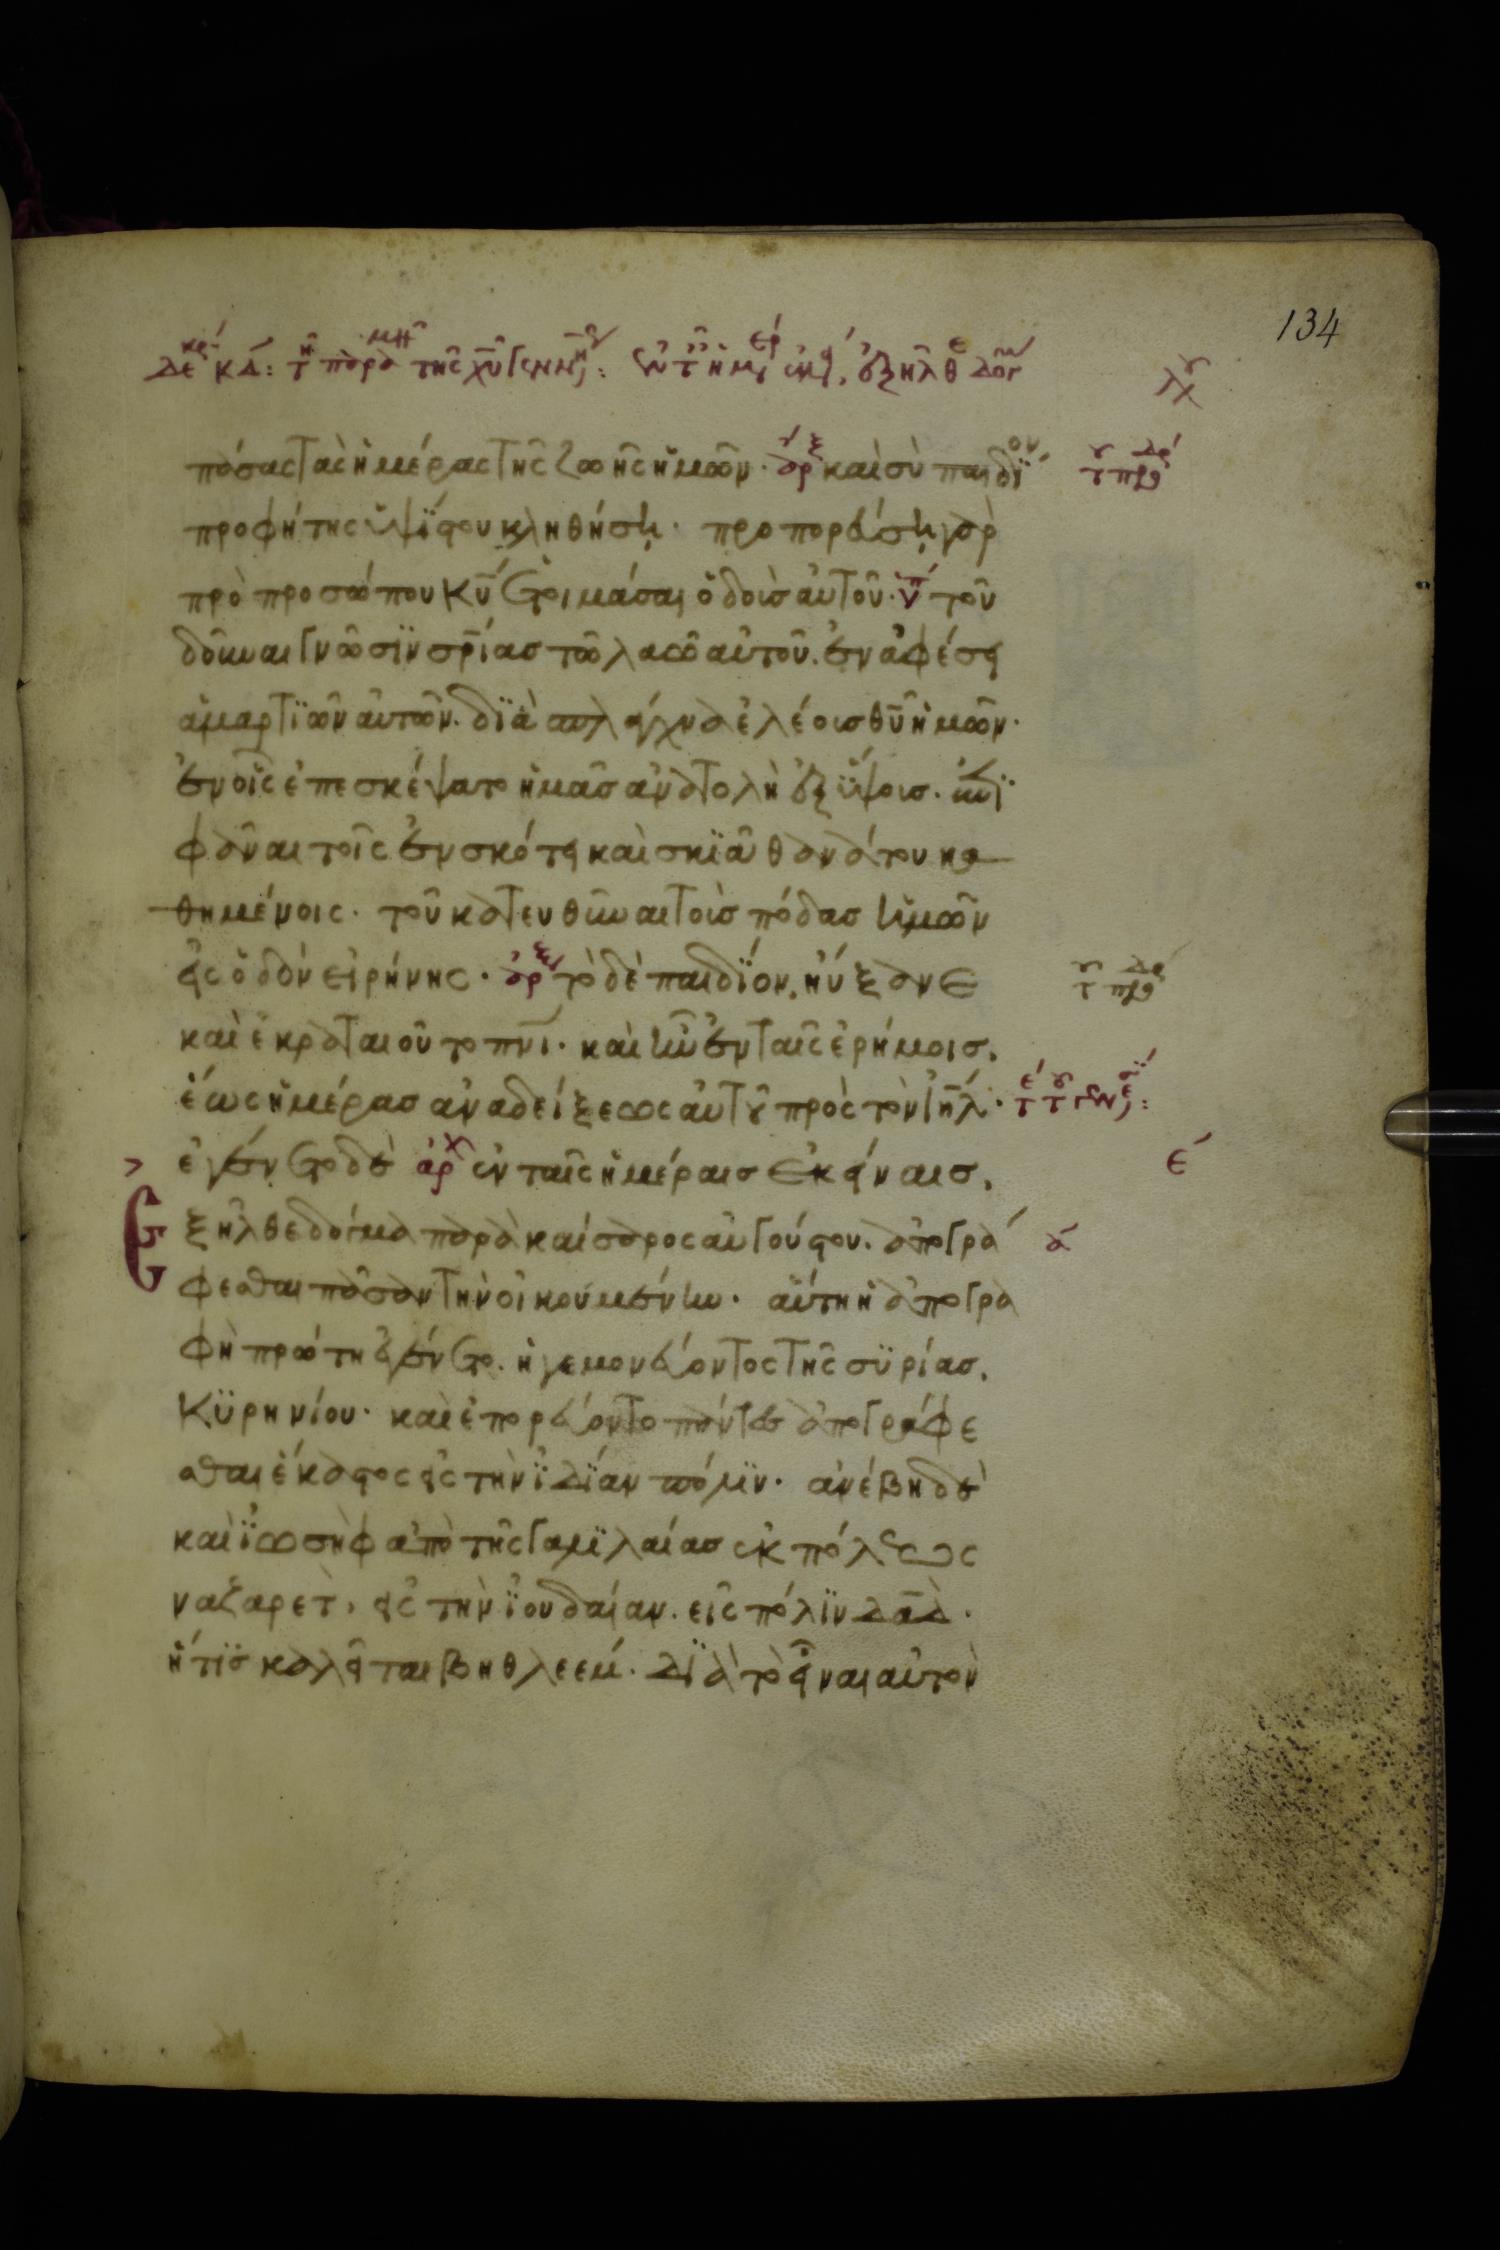 134
πάσας τὰς ἡμέρας τῆς ζωῆς ἡμῶν· καὶ σὺ παιδίον
προφήτης ὑψίστου κληθήσῃ· προπορεύσῃ γὰρ
πρὸ προσώπου κ̅υ̅ ἑτοιμάσαι ὁδοὺς αὐτοῦ· τοῦ
δοῦναι γνῶσϊν σρ̅ίας τῶ λαῶ αὐτοῦ. ἐν ἀφέσει
ἁμαρτϊῶν αὐτῶν· δϊὰ σπλάγχνα ἐλέους θ̅υ̅ ἡμῶν·
ἐν οἷς ἐπεσκέψατο ἡμᾶς ἀνατολὴ ἐξ ὕψους. ἐπϊ
φᾶναι τοῖς ἐν σκότει καὶ σκϊᾶ θανάτου κα
θημένοις· τοῦ κατευθῦναι τοὺς πόδας ἡμῶν
εἰς ὁδὸν εἰρήνης· τὸ δὲ παιδϊόν, ηὔξανε
καὶ ἐκραταιοῦτο π̅ν̅ι· καὶ ἦν ἐν ταῖς ἐρήμοις,
ἕως ἡμέρας ἀναδείξεως αὐτοῦ πρὸς τὸν ἰ̅η̅λ·
ἐγένετο δὲ ἀρχ ἐν ταῖς ἡμέραις ἐκείναις, ε
Ἐξῆλθε δόγμα παρὰ καίσαρος αὐγούστου. ἀπογρά α
φεσθαι πᾶσαν τὴν οἰκουμένην· αὕτη ἡ ἀπογρα
φὴ πρώτη ἐγένετο. ἡγεμονεύοντος τῆς συρίας,
Κυρηνίου· καὶ ἐπορεύοντο πάντες ἀπογράφε
σθαι ἕκαστος εἰς τὴν ϊδϊαν πόλϊν· ἀνέβη δὲ
καὶ ϊωσὴφ ἀπὸ τῆς γαλϊλαίας ἐκ πόλεως
ναζαρετ, εἰς τὴν ϊουδαίαν. εἰς πόλϊν δα̅δ·
ἥτϊς καλεῖται βηθλεεμ· δϊὰ τὸ εἶναι αὐτὸν